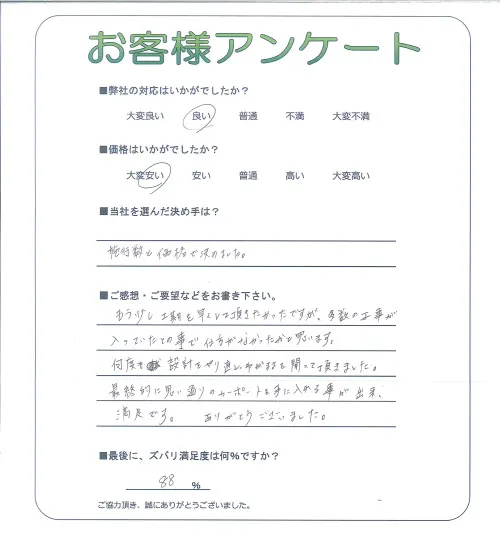 お客様アンケート
■弊社の対応はいかがでしたか？
大変良い 良い 普通 不満 大変不満
■価格はいかがでしたか？
大変安い 安い 普通 高い 大変高い
■当社を選んだ決め手は？
施行数と価格で決めました。
■ご感想・ご要望などをお書き下さい。
もう少し工期を早くして頂きたかったですが、多数の工事が
入っていたとの事で仕方がなかったかと思います。
何度も設計をやり直しわがままを聞いて頂きました。
最終的に思い通りのカーポートを手に入れる事が出来、
満足です。 ありがとうございました。
■最後に、ズバリ満足度は何％ですか？
88 ％
ご協力頂き、誠にありがとうございました。